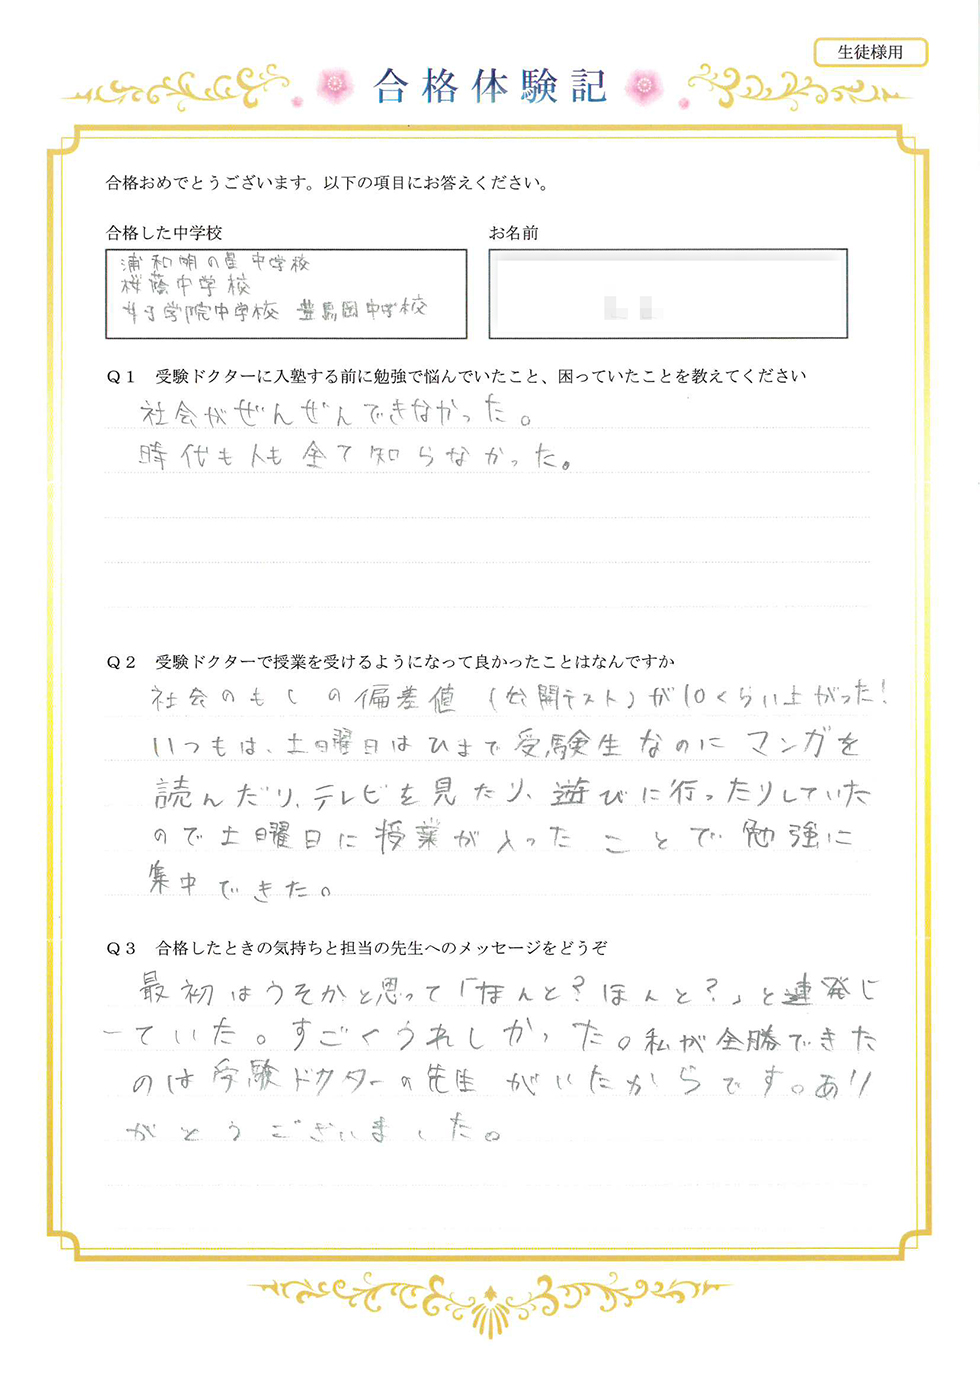 生徒様用
合格体験記
合格おめでとうございます。以下の項目にお答えください。
合格した中学校
お名前
浦和明の星中学校
桜蔭中学校
女子学院中学校 豊島岡中学校
Q1 受験ドクターに入塾する前に勉強で悩んでいたこと、困っていたことを教えてください
社会がぜんぜんできなかった。
時代も人も全て知らなかった。
Q2 受験ドクターで授業を受けるようになって良かったことはなんですか
社会のもしの偏差値(公開テスト)が10くらい上がった!
いつもは、土日曜日はひまで受験生なのにマンガを
読んだり、テレビを見たり、遊びに行ったりしていた
ので土日曜日に授業が入ったことで勉強に
集中できた。
Q3 合格したときの気持ちと担当の先生へのメッセージをどうぞ
最初はうそかと思って「ほんと?ほんと?」と連発し
ていた。すごくうれしかった。私が全勝できた
のは受験ドクターの先生がいたからです。あり
がとうございました。